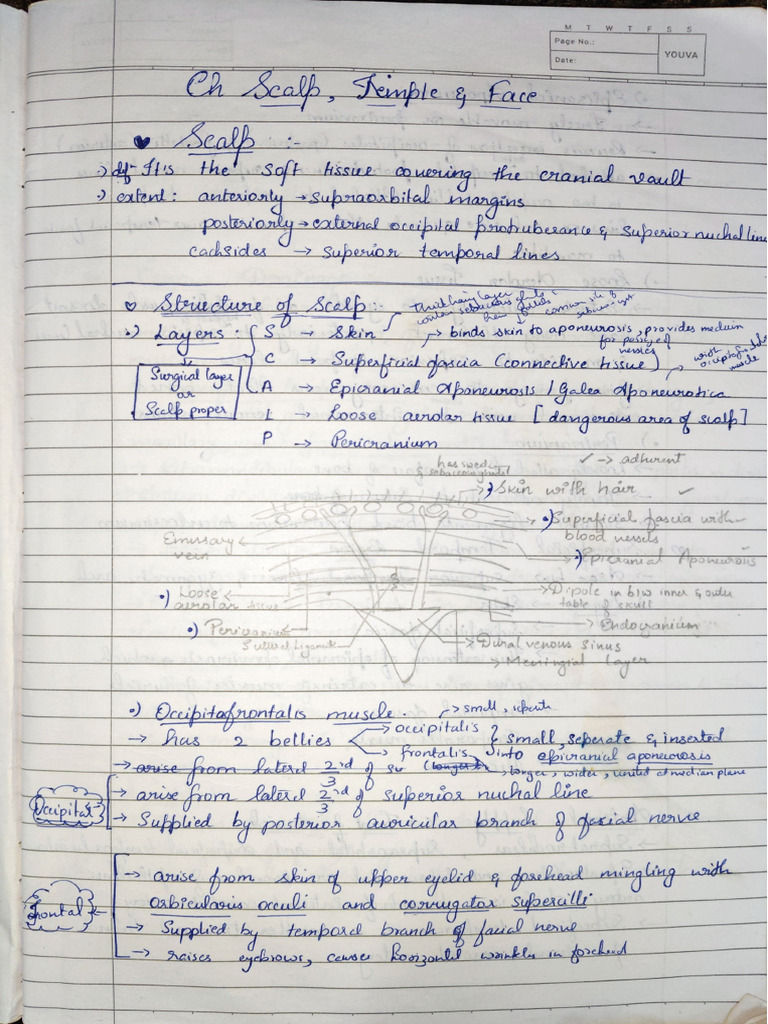 M T W T F S S
Page No.:
Date:
YOUVA
Ch Scalp, Temple & Face
♥ Scalp :-
•) def- It's the soft tissue covering the cranial vault
•) extent : anteriorly → supraorbital margins
posteriorly → external occipital protruberance & superior nuchal line
eachsides → superior temporal lines
♥ Structure of Scalp :-
thick hairy layer
•) Layers : S → Skin
binds skin to aponeurosis, provides medium
for passage of
vessels
C → Superficial fascia (connective tissue)
with
occipitofrontalis
muscle
Surgical layer
or
Scalp proper
A → Epicranial Aponeurosis / Galea Aponeurotica
L → Loose aerolar tissue [dangerous area of scalp]
P → Pericranium
✓ → adherent
has sweat
& sebaceous gland
•) Skin with hair ✓
•) Superficial fascia with
blood vessels
Emissary
vein
•) Epicranial Aponeurosis
•) Loose
aerolar tissue
Dipole in b/w inner & outer
table of skull
•) Pericranium
Endocranium
Sutural ligament
Dural venous sinus
Meningial layer
•) Occipitofrontalis muscle.
→ small, seperate
→ has 2 bellies
occipitalis
frontalis
small, seperate & inserted
into epicranial aponeurosis
→ arise from lateral 2/3rd of su
→ longer, wider, united at median plane
Occipital
→ arise from lateral 2/3rd of superior nuchal line
→ Supplied by posterior auricular branch of facial nerve
Frontal
→ arise from skin of upper eyelid & forehead mingling with
orbicularis occuli and corrugator supercilli
→ Supplied by temporal branch of facial nerve
→ raises eyebrows, causes horizontal wrinkles in forehead